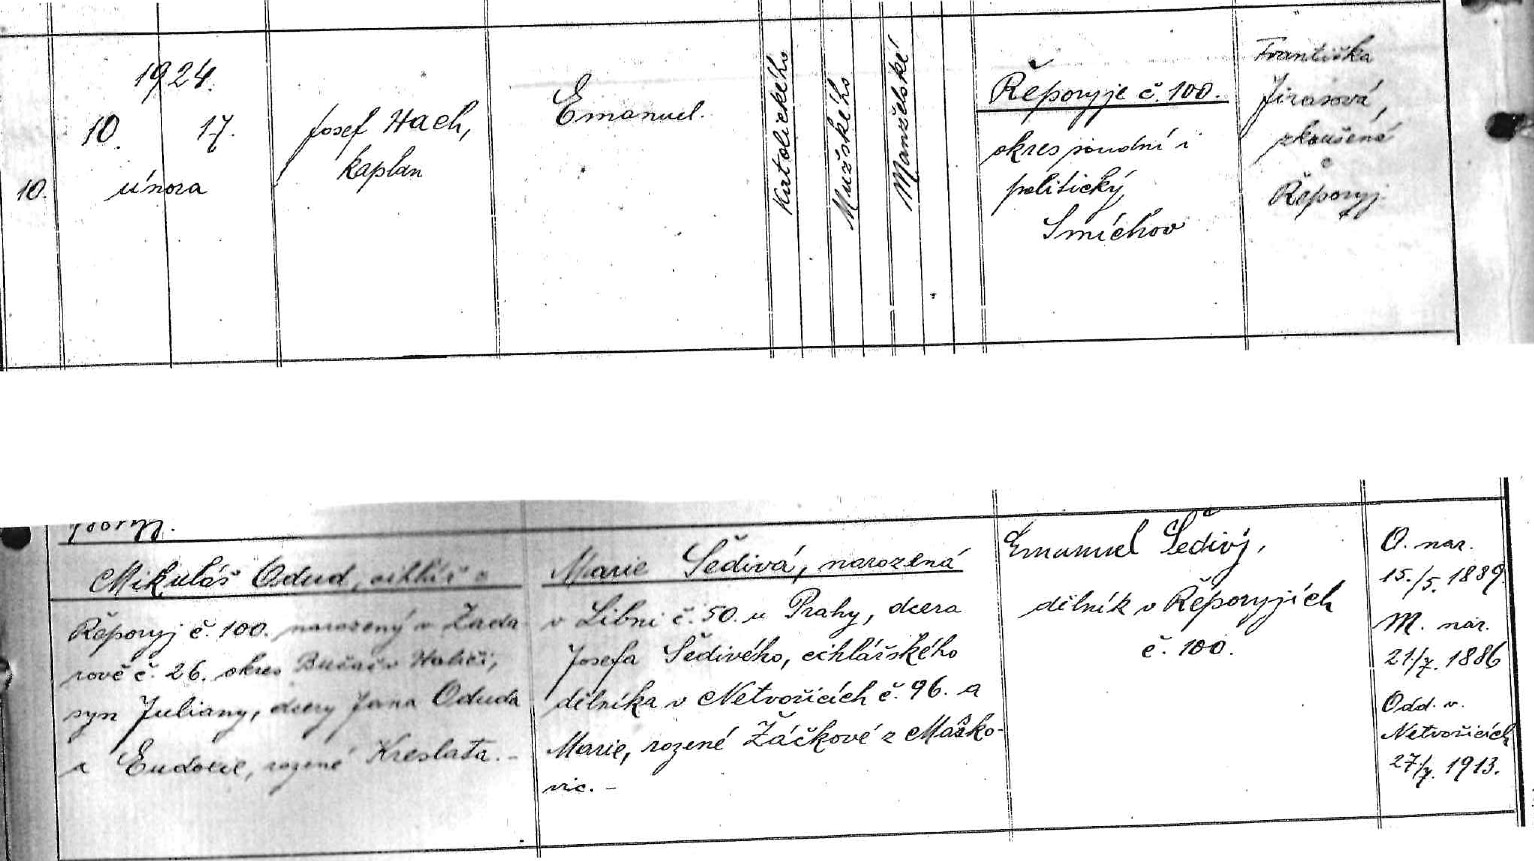 10.
1924.
10. 17.
února
Josef Hach,
kaplan
Emanuel.
Katolického
Mužského
Manželské
Řeporyje č. 100.
okres soudní i
politický
Smíchov
Františka
Jirasová,
zkoušená
Řeporyj.
Mikuláš Odud, cihlář v
Řeporyj č. 100. narozený v Zada-
rově č. 26. okres Bučač v Haliči,
syn Juliany, dcery Jana Oduda
a Eudocie, rozené Kreslata. -
Marie Šedivá, narozená
v Libni č. 50. u Prahy, dcera
Josefa Šedivého, cihlářského
dělníka v Netvořicích č. 96. a
Marie, rozené Žáčkové z Maško-
vic. -
Emanuel Šedivý,
dělník v Řeporyjích
č. 100.
O. nar.
15./5. 1889.
M. nar.
21/7. 1886
Odd. v.
Netvořicích
27/7. 1913.